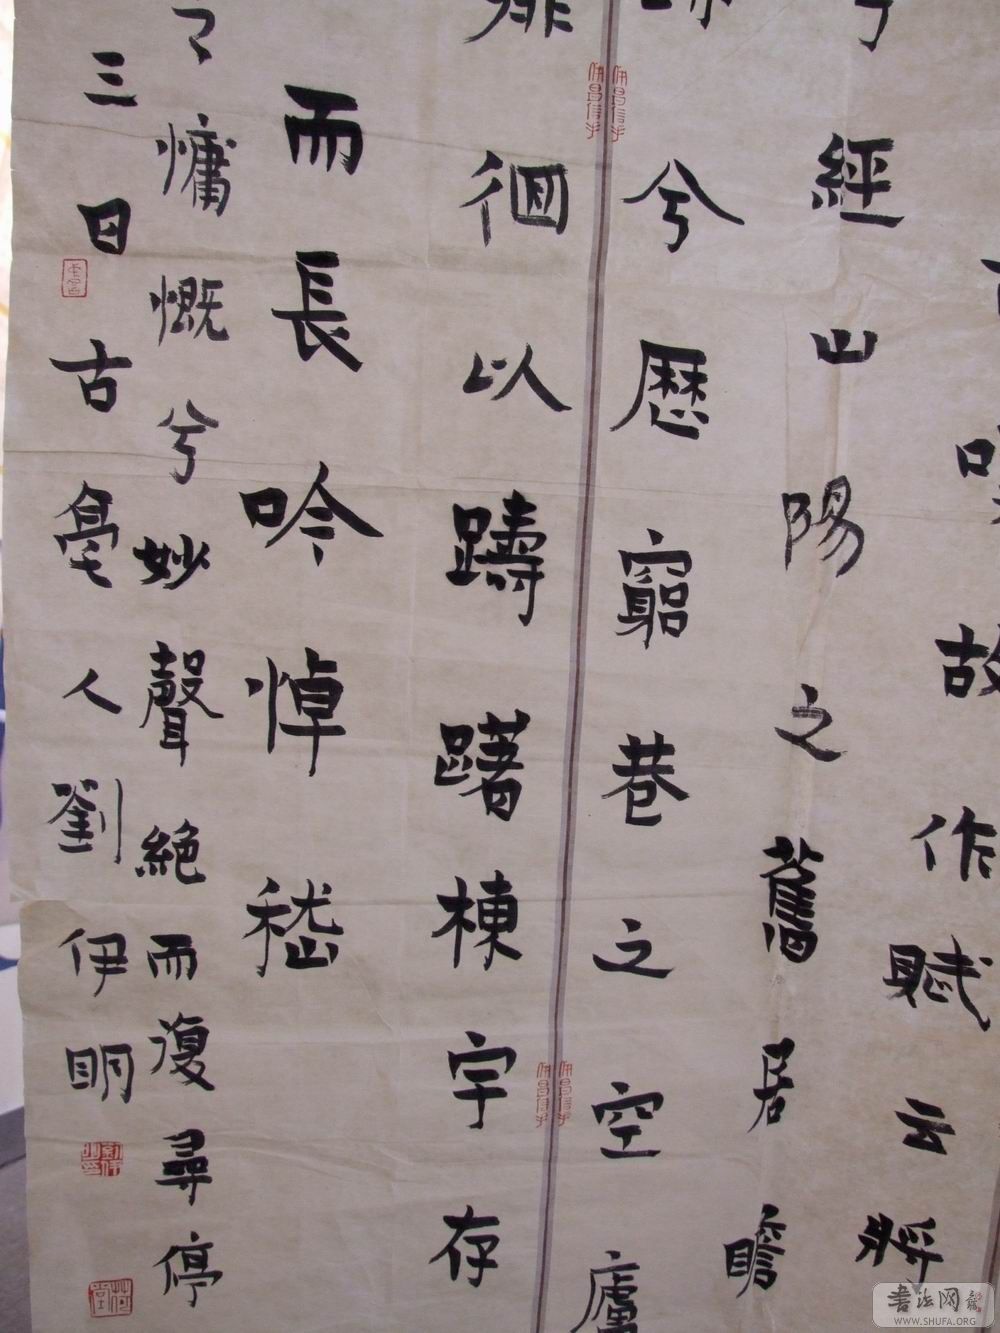 故作賦云將
兮經山陽之舊居瞻
兮歷窮巷之空廬
徘徊以躊躇棟宇存
而長吟悼嵇
慷慨兮妙聲絕而復尋停
三日古亳人劉伊明
书法网
WWW.SHUFA.ORG